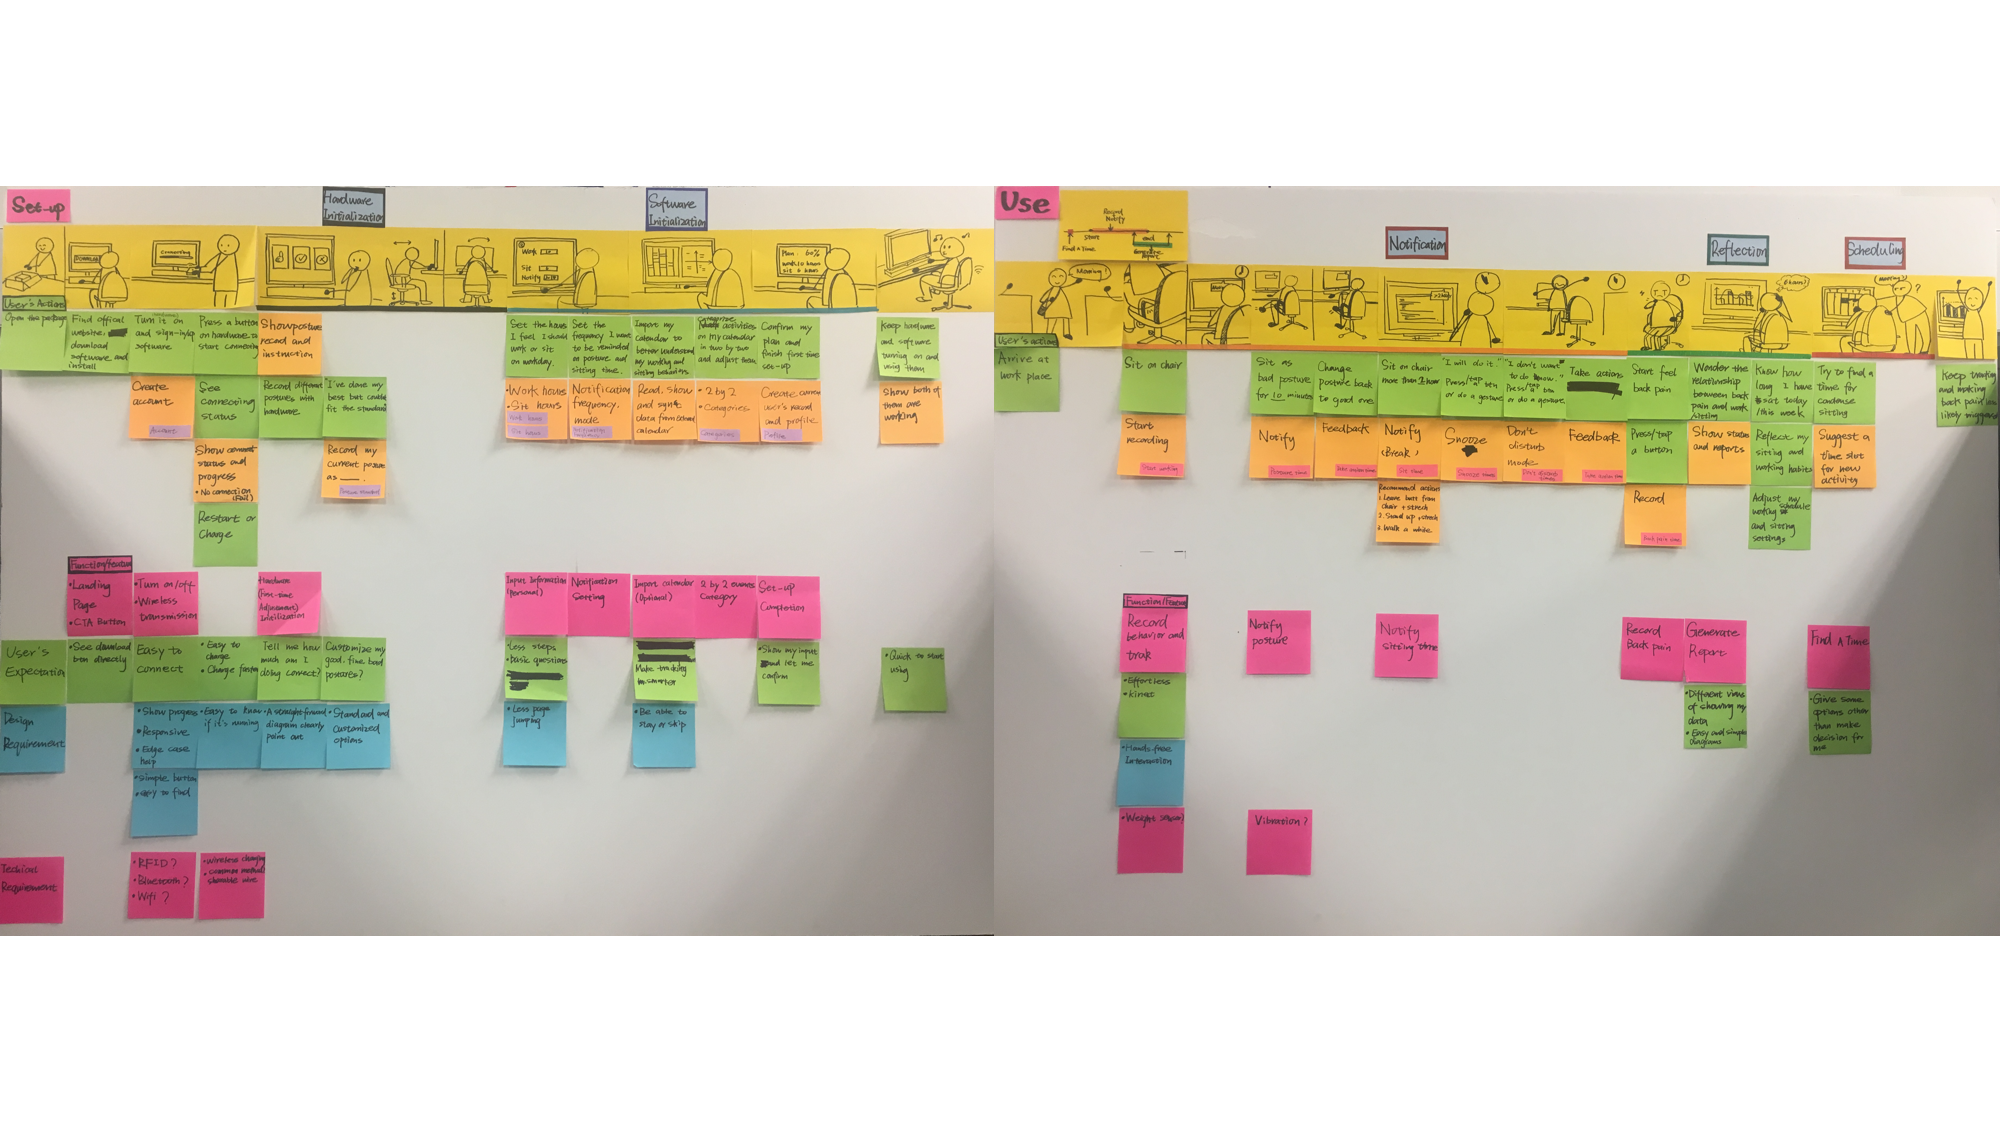 Set-up
Hardware
Initialization
Software
Initialization
DOWNLOAD
Connecting
Work
Sit
Notify
Plan: 60%
work 10 hours
sit 6 hours
User's Actions
Open the package
Find offical
website,
download
software and
install
Turn it on
and sign-in/up
software
Press a button
on hardware to
start connecting
Show posture
record and
instruction
Set the hours
I feel I should
work or sit
on workday.
Set the
frequency I want
to be reminded
on posture and
sitting time.
Import my
calendar to
better understand
my working and
sitting behaviors.
Categorize
activities
on my calendar
in two by two
and adjust them.
Confirm my
plan and
finish first time
set-up
Keep hardware
and software
running on and
using them
Create
account
Account
See
connecting
status
Record different
postures with
hardware
I've done my
best but couldn't
fit the standard
• Work hours
• Sit hours
Work hours
Sit hours
Notification
frequency,
mode
Read, show
and sync
data from school
calendar
• 2 by 2
• Categories
Categories
Create current
user's record
and profile
Profile
Show both of
them are
working
Show connect
status and
progress
• No connection
(Fail)
Record my
current posture
as ___.
Posture standard
Restart or
Charge
Function/Feature
• Landing
Page
• CTA Button
• Turn on/off
• Wireless
Transmission
Hardware
(First-time
Adjustment)
Initilization
Input Information
(Personal)
Notification
Setting
Import calendar
(Optional)
2 by 2 events
Category
Set-up
Completion
User's
Expectation
• See download
btn directly
Easy to
connect
• Easy to
charge
• Charge
Tell me how
much am I
doing correct?
Customize my
good, fine, bad
postures?
• Less steps
• Basic questions
Make tracking
smarter
• Show my input
and let me
confirm
• Quick to start
using
Design
Requirement
• Show progress
• Responsive
• Edge case
help
• Easy to know
if it's running
• A straight-forward
diagram clearly
point out
• Standard and
Customized
options
• Less page
jumping
• Be able to
stay or skip
• Simple button
• easy to find
Techical
Requirement
• RFID?
• Bluetooth?
• Wifi?
• Wireless charging
• common method
Use
Record
Notify
Start
end
Find A Time
Generate
Report
Notification
Reflection
Scheduling
Morning!
User's action
Arrive at
work place
Sit on chair
Sit as
bad posture
for 10 minutes
Change
posture back
to good one
Sit on chair
more than 1 hour
"I will do it."
Press/tap a btn
or do a gesture
"I don't want
to do know."
Press/tap a btn
or do a gesture.
Take actions
Start feel
back pain
Wonder the
relationship
between back
pain and work
sitting
Know how
long I have
sat today
/this week
Try to find a
time for
condense
sitting
Keep tracking
and making
back pain less
likely triggered
Start
recording
Start working
Notify
Posture time
Feedback
Notify
(Break)
Sit time
Snooze
Snooze time
Don't
disturb
mode
Feedback
Press/tap
a button
Show status
and reports
Reflect my
sitting and
working habits
Suggest a
time slot
for new
activity
Recommend actions
1. Leave butt from
chair + strech
2. Stand up + strech
3. Walk a while
Record
Back pain time
Adjust my
working schedule
and sitting
settings
Function/Feature
Record
behavior and
track
Notify
posture
Notify
sitting time
Record
Back pain
Generate
Report
Find A Time
• Effortless
• Different views
of showing my
data
• Easy and simple
diagrams
• Give some
options other
than make
decision for
me
• Hands-free
Interaction
• Weight sensor?
Vibration?